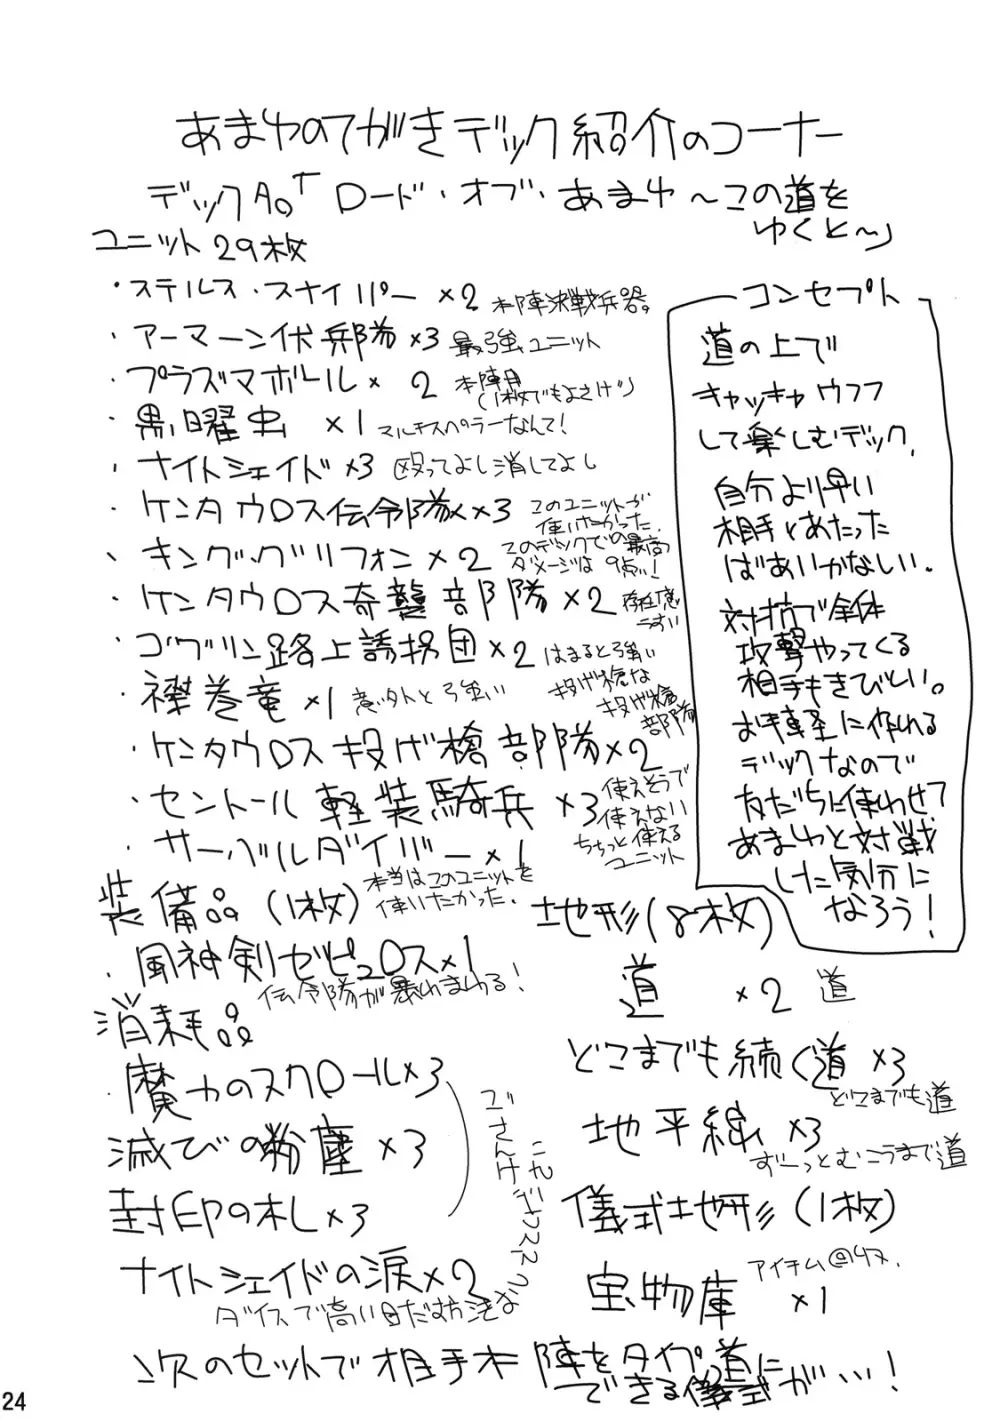 あまゆのてがきデック紹介のコーナー
デックNo.1 ロード・オブ・あまゆ～この道を
ゆくと～」
ユニット29枚
・ステルス・スナイパー×2 本陣決戦兵器。
・アーマーン伏兵部隊×3 最強ユニット
・プラズマボール×2 本陣用
(1枚でもよさげ)
・黒曜虫 ×1 マルチスペラーなんて!
・ナイトシェイド×3 殴ってよし消してよし
・ケンタウロス伝令隊×3 このユニットが
使いたかった。
・キング・グリフォン×2 このデックでの最高
ダメージは9点!
・ケンタウロス奇襲部隊×2 存在感
うすい
・ゴブリン路上誘拐団×2 はまると強い
・襟巻竜×1 意外と強い
・ケンタウロス投げ槍部隊×2 投げ槍な
投げ槍
部隊
・セントール軽装騎兵×3 使えそうで
使えない
ちょっと使える
ユニット
・サーベルダイバー×1 本当はこのユニットを
使いたかった。
装備品(1枚)
・風神剣ゼピュロス×1
伝令隊が暴れまわる!
消耗品
・魔力のスクロール×3
滅びの粉塵×3
封印の札×3
ナイトシェイドの涙×2
ダイスで高い目だす方法な
コンセプト
道の上で
キャッキャウフフ
して楽しむデック。
自分より早い
相手とあたった
ばあいかなしい。
対抗で全体
攻撃やってくる
相手もきびしい。
お手軽に作れる
デックなので
友だちに使わせて
あまゆと対戦
した気分に
なろう!
地形(8枚)
道 ×2 道
どこまでも続く道×3
どこまでも道
地平線×3
ずーっとむこうまで道
儀式地形(1枚)
宝物庫×1
次のセットで相手本陣をタイプ:道に
できる儀式が…!
24